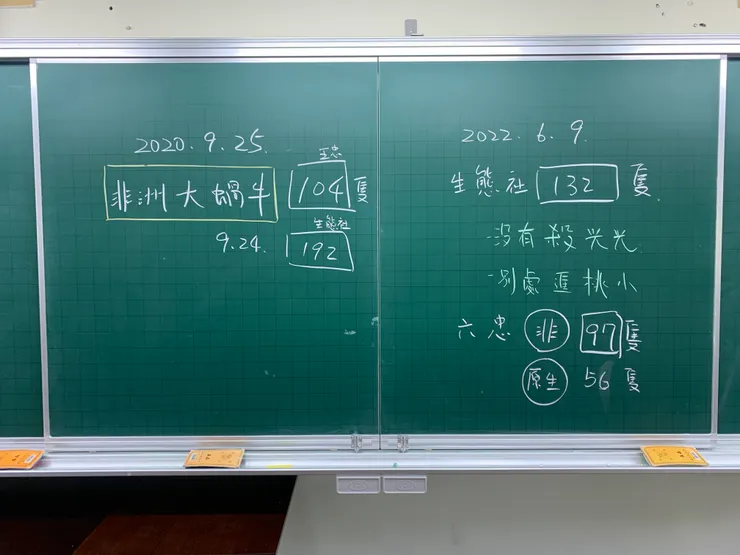 2020.9.25.
五忠
非洲大蝸牛 104 隻
生態社
9.24. 192
2022.6.9.
生態社 132 隻
沒有殺光光
別處 桃小
六忠 非 97 隻
原生 56 隻